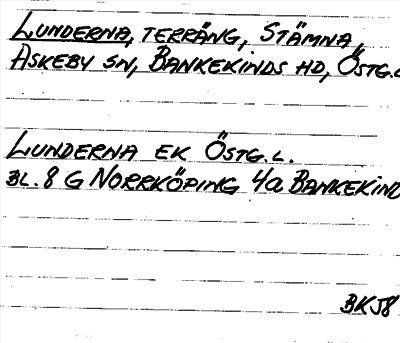 LUNDERNA, TERRÄNG, STÄMNA,
ASKEBY SN, BANKEKINDS HD, ÖSTG.L
LUNDERNA EK ÖSTG.L.
BL. 8 G NORRKÖPING 4a BANKEKIND
BKJ8